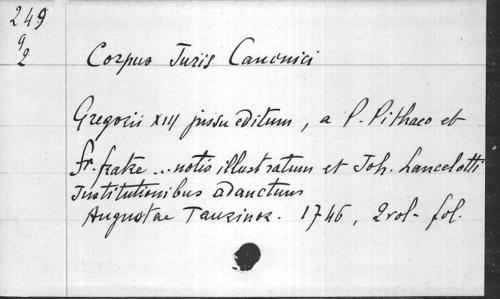 249
9
2
Corpus Juris Canonici
Gregorii XIII jussu editum, a P. Pithaeo et
fr. fratre ... notis illustratum et Joh. Lancelotti
Institutionibus adauctum
Augustae Taurinor. 1746, 2 vol. fol.